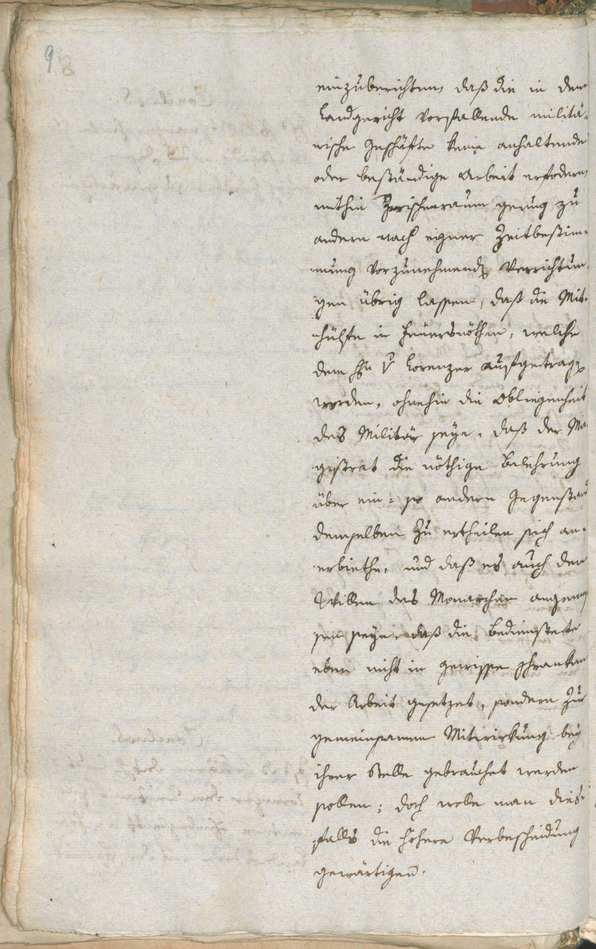 98
einzuberichten, daß die in dem
Landgericht vorfallende militä-
rische Geschäfte keine anhaltende
oder beständige Arbeit erfodern,
mithin Zwischenraum genug zu
andern nach eigner Zeitbestim-
mung vorzunehmenden Verrichtun-
gen übrig lassen, daß die Mit-
hülfe in Feuersnöthen, welche
dem Hrn v Lorenzer aufgetragen
worden, ohnehin die Obliegenheit
des Militär seye, daß der Ma-
gistrat die nöthige Belehrung
über ein- so andern Gegenstand
demselben zu ertheilen sich an-
erbiethe, und daß es auch dem
Willen des Monarchen angemes-
sen seye, daß die Bedienstete
eben nicht in gewisse Schranken
der Arbeit gesetzet, sondern zur
gemeinsamen Mitwirkung bey
ihrer Stelle gebrauchet werden
sollen; doch wolle man dies-
falls die höhere Verbescheidung
gewärtigen.